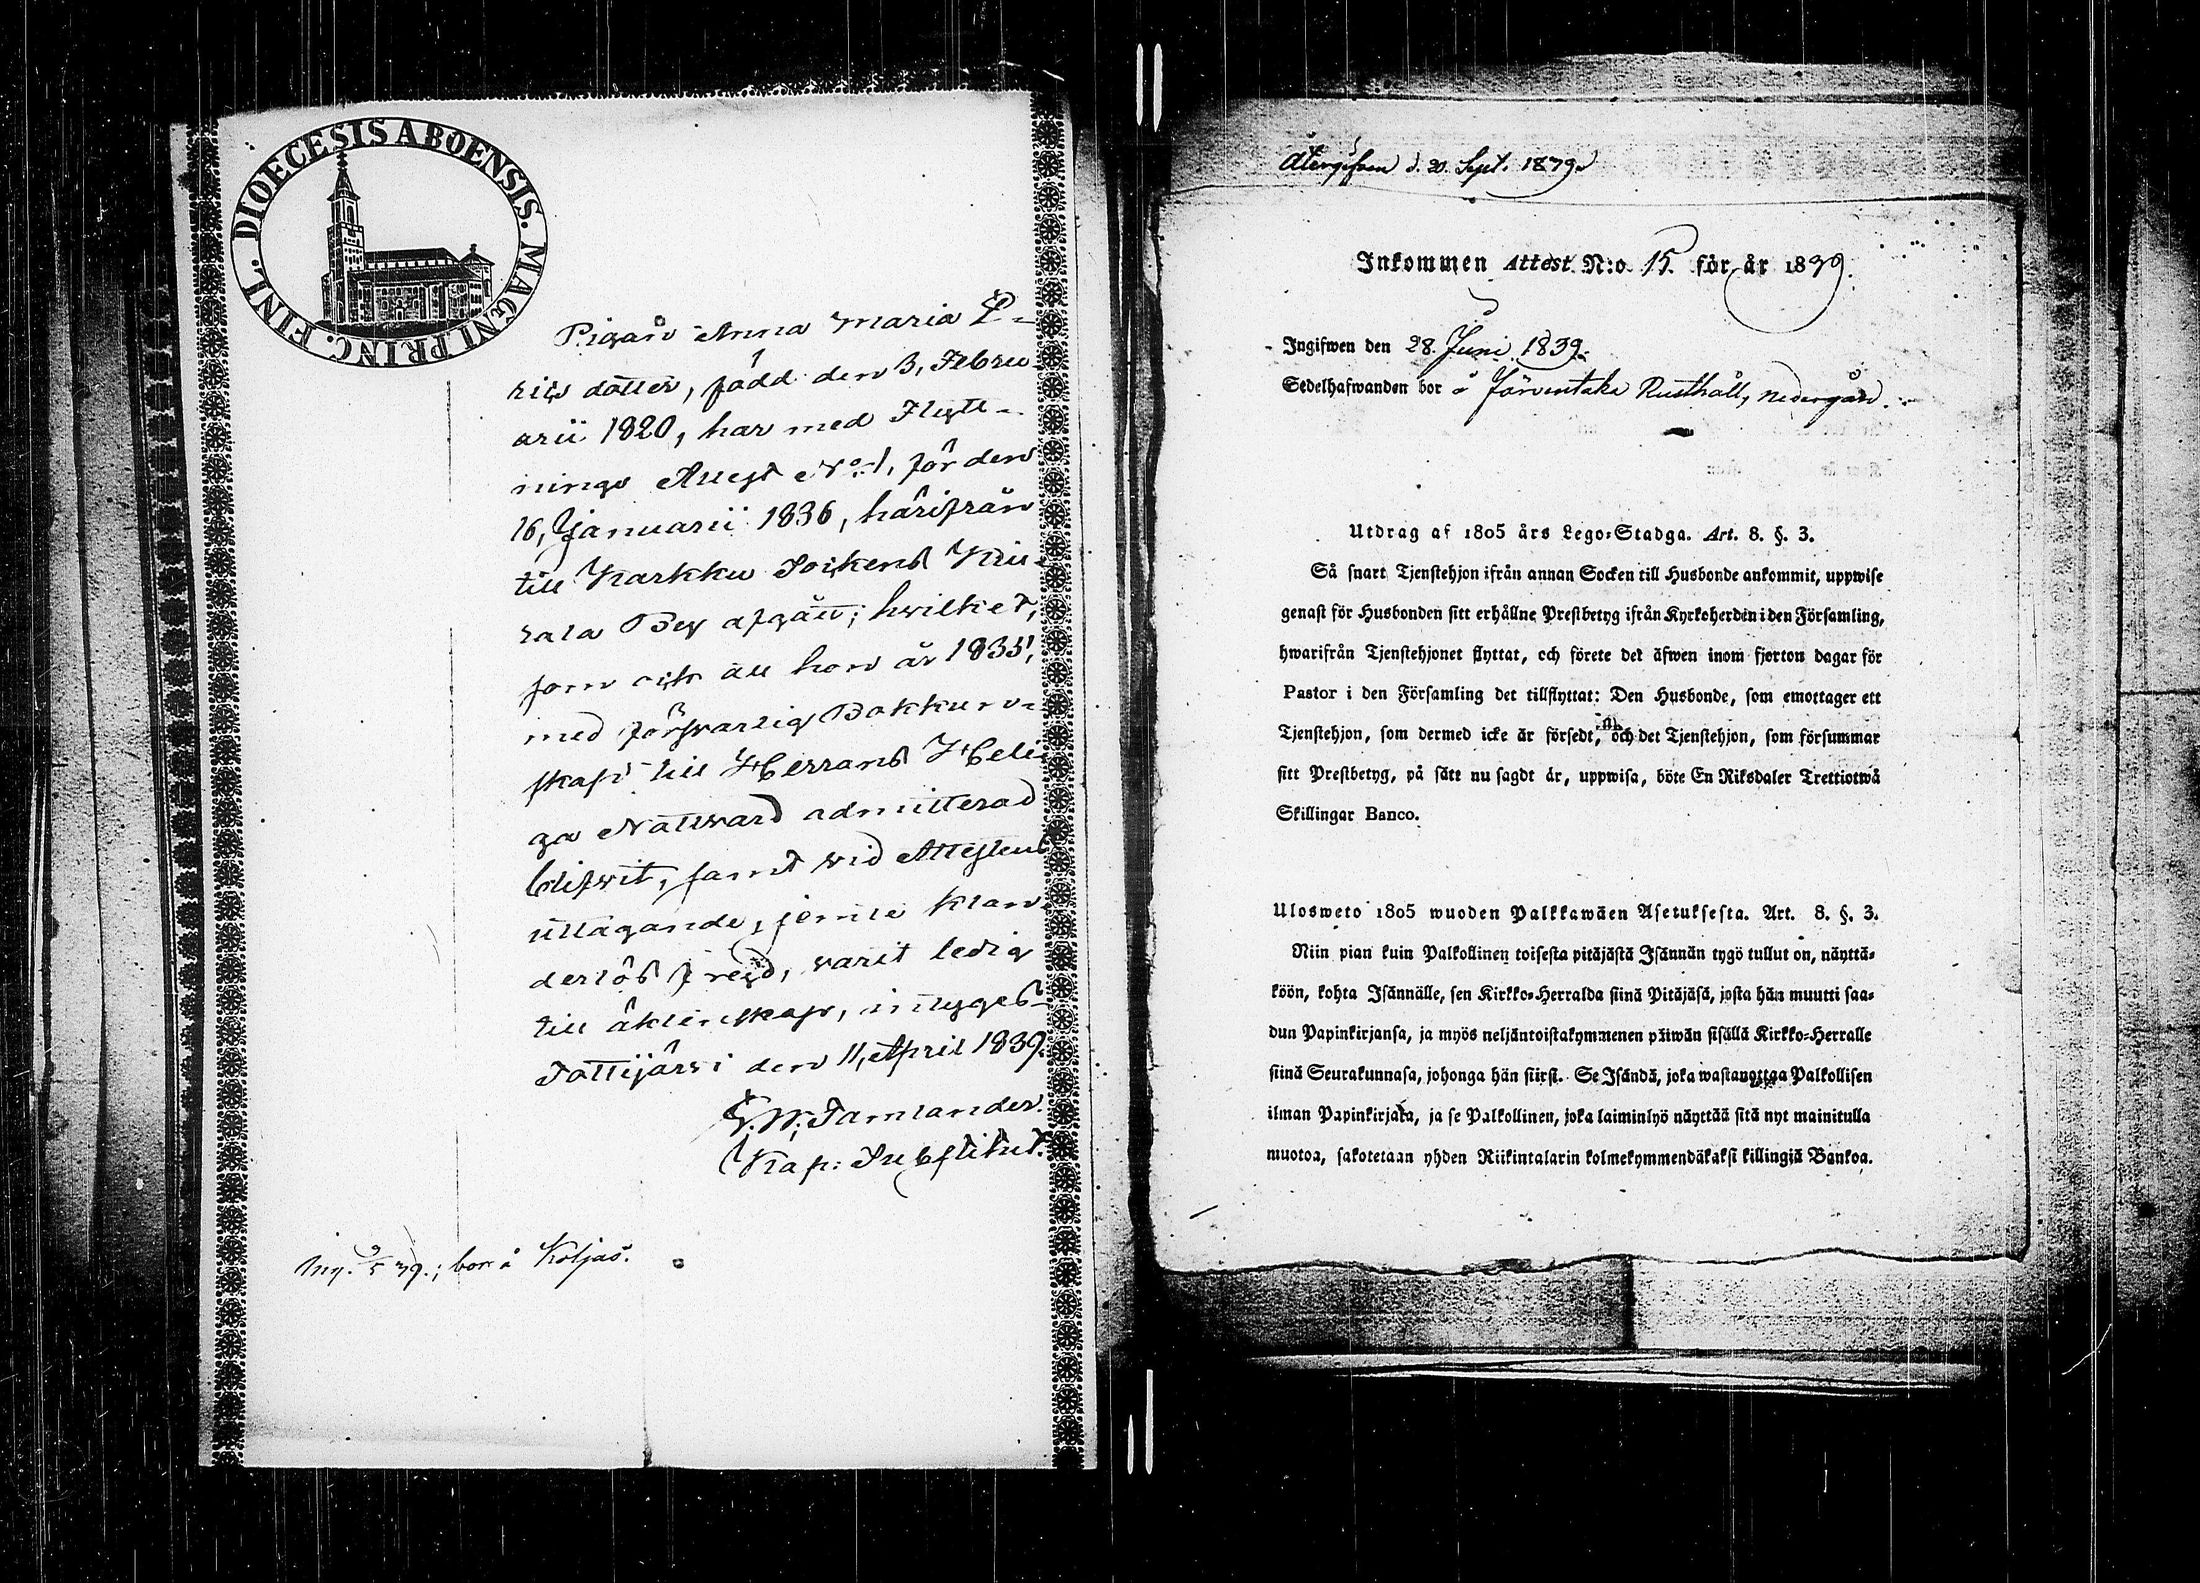 DIOECESIS ABOENSIS. MAGNI PRINC. FINL.
Pigan Anna Maria E-
rics dotter, född den 3, Febru-
arii 1820, har med Flytt-
nings Attest No: 1, för den
16, Januarii 1836, härifrån
till Karkku Sockens Kiu-
rala By afgått; hvilket,
som ock att hon år 1835,
med försvarlig Bokkun-
skap till Herrans Heli-
ga Nattvard admitterad
blifvit, samt vid Attestens
uttagande, jemte klan-
derlös frejd, varit ledig
till äktenskap, intygas
Sottijärvi den 11, April 1839.
G. W. Tamlander.
Kap: Substitut.
Ing. 9/5 39.; bor å Koljas.
Återgifven d. 20. Sept. 1879.
Inkommen Attest N:o 15. för år 1839.
Ingifwen den 28. Juni 1839.
Sedelhafwanden bor å Järventaka Rusthåll, nedergård.
Utdrag af 1805 års Lego-Stadga. Art. 8. §. 3.
Så snart Tjenstehjon ifrån annan Socken till Husbonde ankommit, uppwise
genast för Husbonden sitt erhållne Prestbetyg ifrån Kyrkoherden i den Församling,
hwarifrån Tjenstehjonet flyttat, och förete det äfwen inom fjorton dagar för
Pastor i den Församling det tillflyttat: Den Husbonde, som emottager ett
Tjenstehjon, som dermed icke är försedt, och det Tjenstehjon, som försummar
sitt Prestbetyg, på sätt nu sagdt är, uppwisa, böte En Riksdaler Trettiotwå
Skillingar Banco.
Ulosweto 1805 wuoden Palkkawäen Asetuksesta. Art. 8. §. 3.
Niin pian kuin Palkollinen toisesta pitäjästä Isännän tygö tullut on, näyttä-
köön, kohta Isännälle, sen Kirkko-Herralda siinä Pitäjäsä, josta hän muutti saa-
dun Papinkirjansa, ja myös neljäntoistakymmenen päiwän sisällä Kirkko-Herralle
siinä Seurakunnasa, johonga hän siirsi. Se Isändä, joka wastanottaa Palkollisen
ilman Papinkirjata, ja se Palkollinen, joka laiminlyö näyttää sitä nyt mainitulla
muotoa, sakotetaan yhden Riikintalarin kolmekymmendäkaksi killingiä Bankoa.